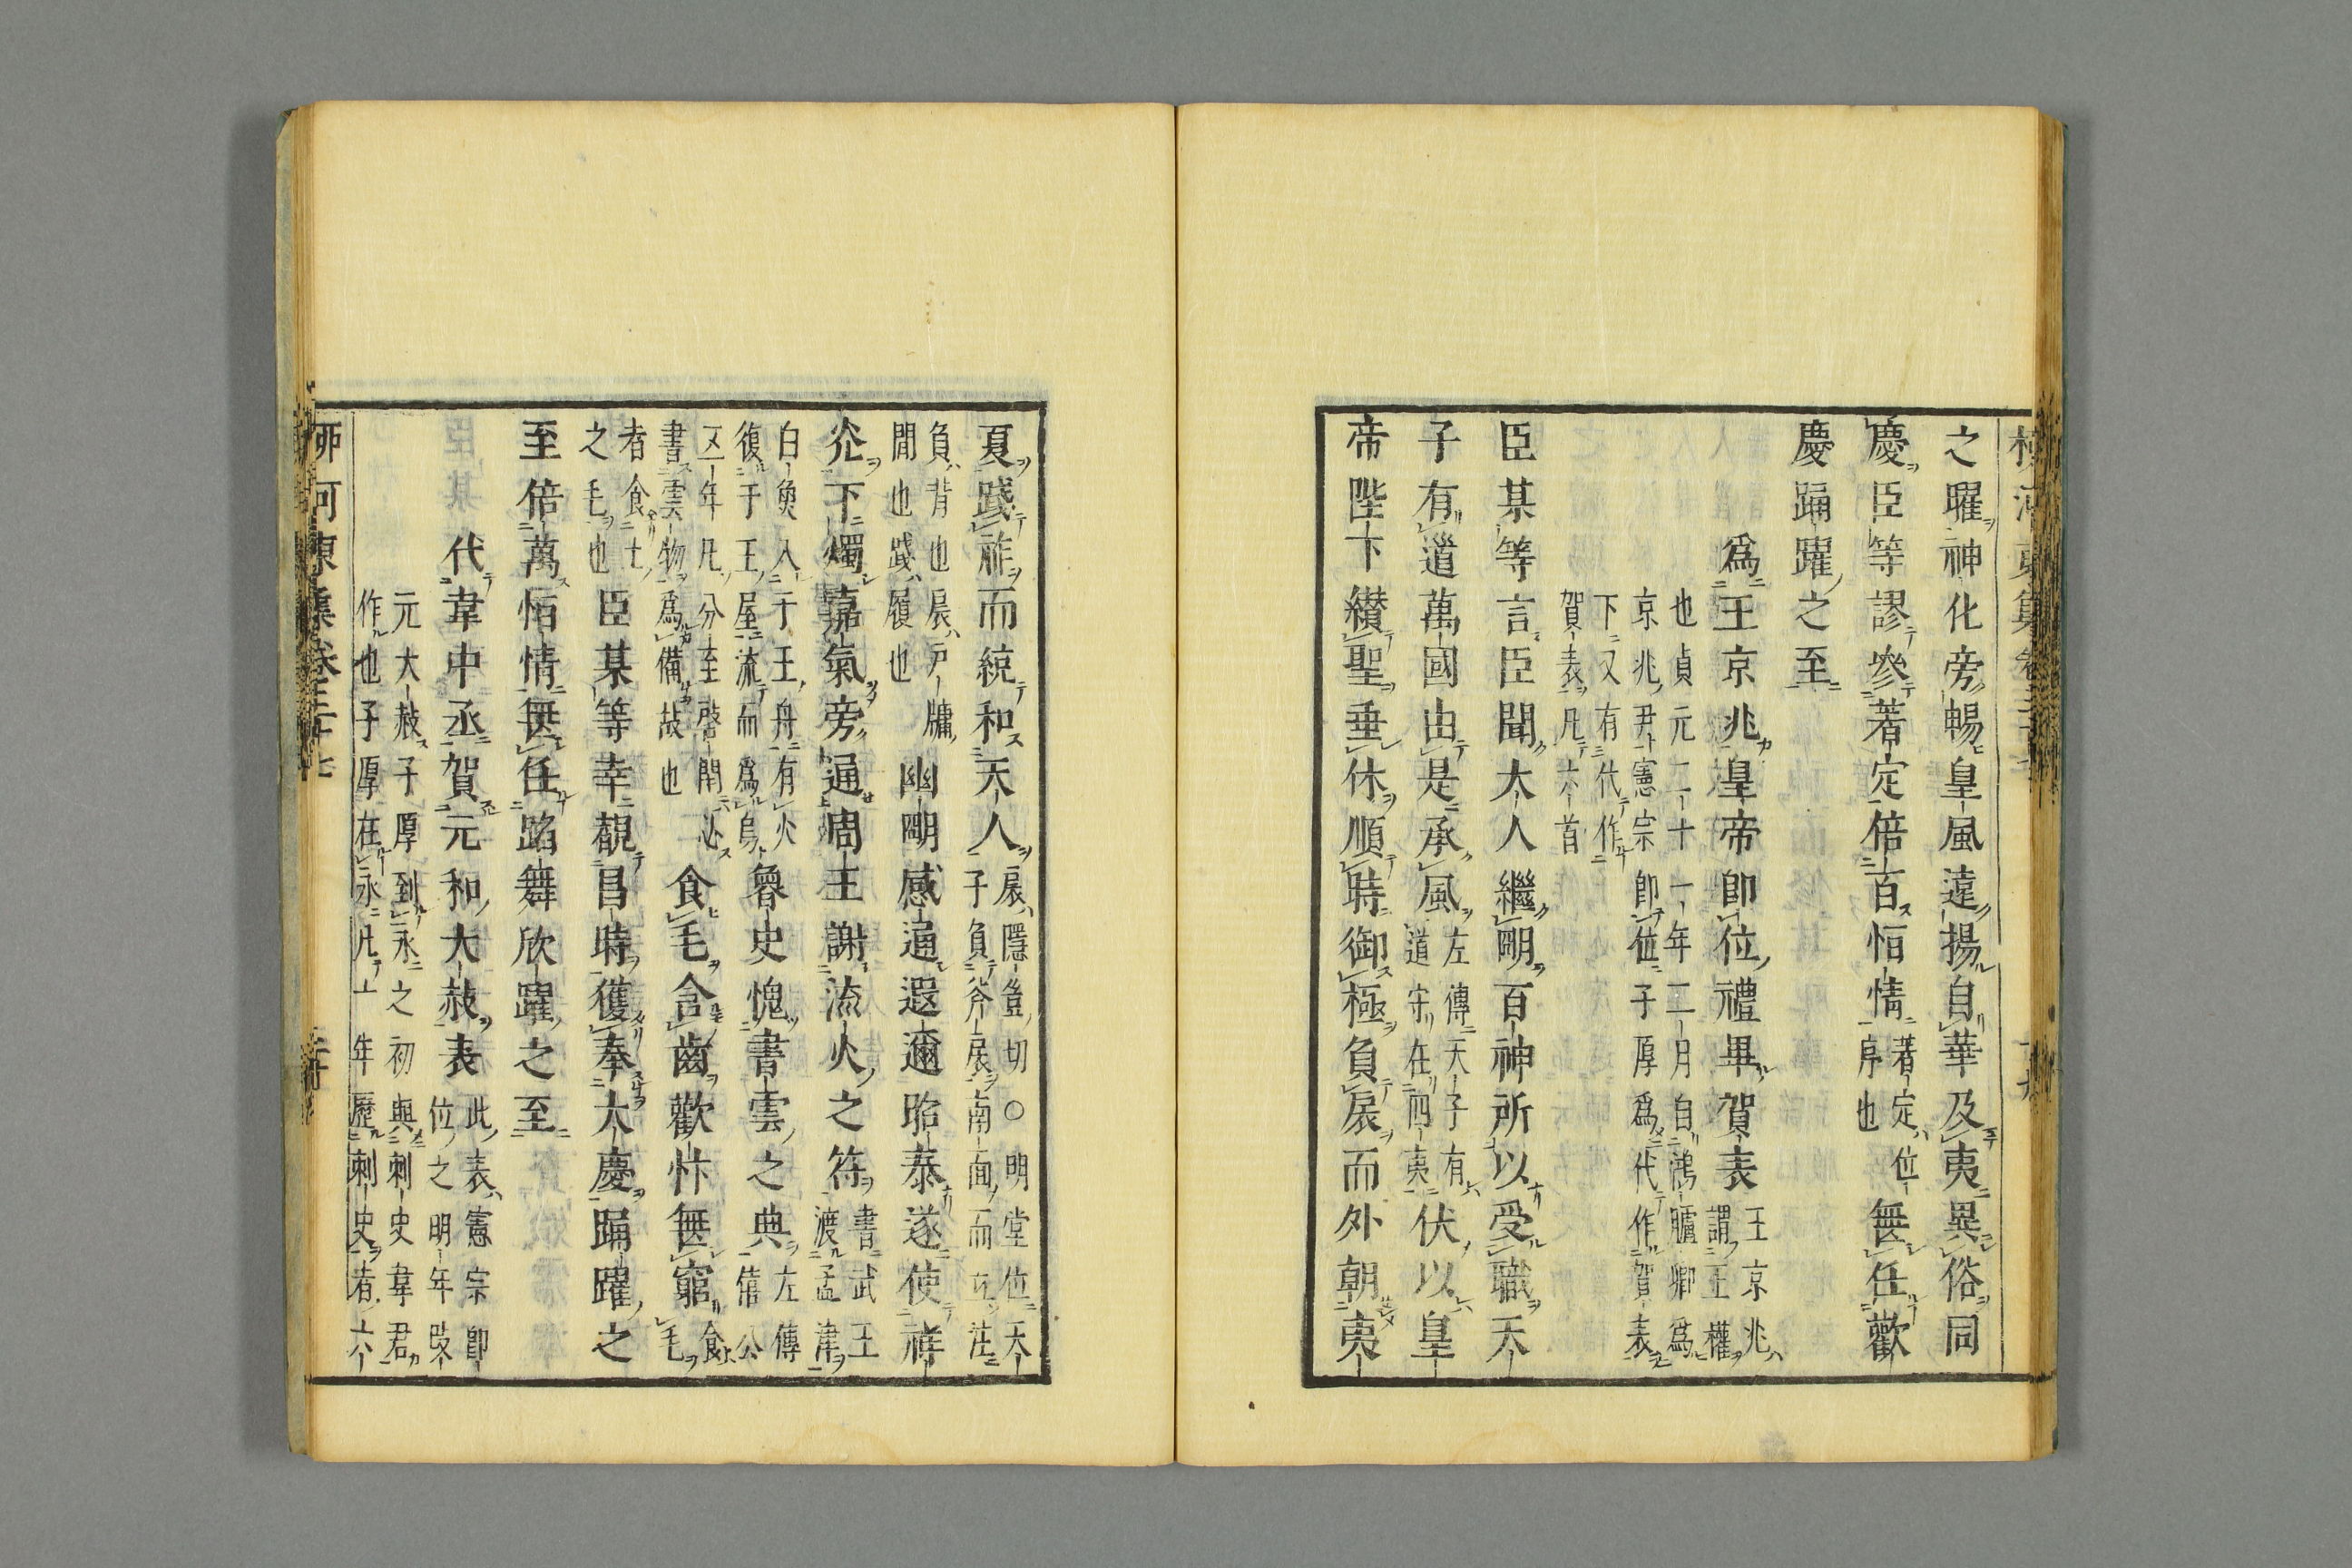 之曜神化旁暢皇風遠揚自華及夷異俗同
慶臣等謬參著定倍百恒情著定位序也無任歡
慶踊躍之至
爲王京兆皇帝即位禮畢賀表王京兆謂王權
也貞元二十一年二月自鴻臚卿爲
京兆尹憲宗即位子厚爲代作賀表
下又有代作
賀表凡六首
臣某等言臣聞大人繼明百神所以受職天
子有道萬國由是承風左傳天子有道守在四夷伏以皇
帝陛下纘聖垂休順時御極負扆而外朝夷
夏踐祚而統和天人扆隱豈切○明堂位天子負斧扆南面而立注
負背也扆戶牖
間也踐履也幽明感通遐邇昭泰遂使祥
光下燭嘉氣旁通周王謝流火之符書武王渡孟津
白魚入于王舟有火
復于王屋流而爲烏魯史愧書雲之典左傳僖公
五年凡分至啓閉必
書雲物爲備故也食毛含齒歡忭無窮食毛
者食土
之毛也臣某等幸覩昌時獲奉大慶踊躍之
至倍萬恒情無任蹈舞欣躍之至
代韋中丞賀元和大赦表此表憲宗即位之明年改
元大赦子厚到永之初與刺史韋君
作也子厚在永凡十年歷刺史者六
柳河東集卷三十七